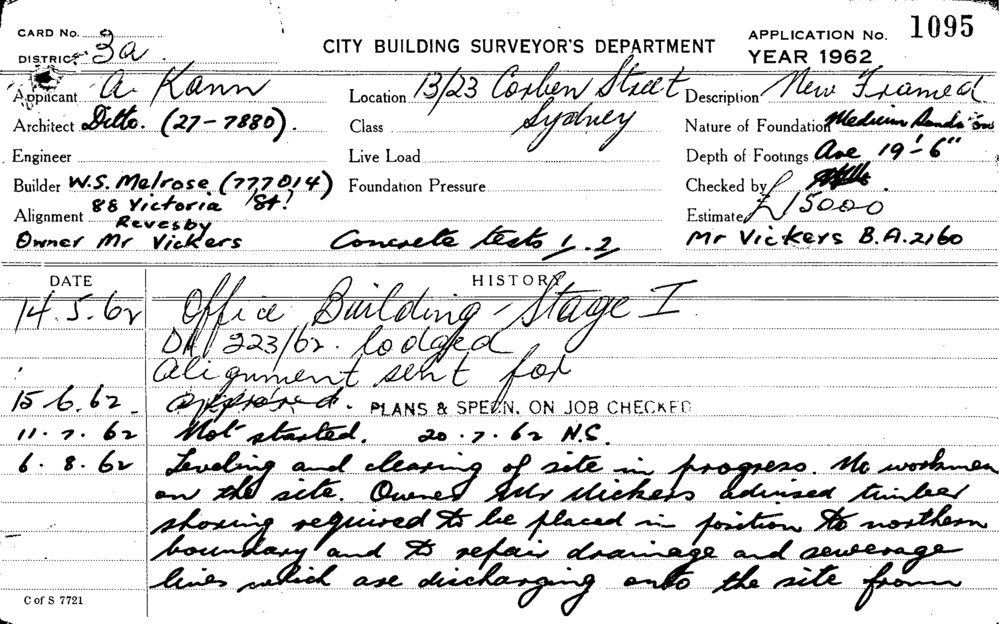 CARD No.
DISTRICT 3a
CITY BUILDING SURVEYOR'S DEPARTMENT
APPLICATION No. 1095
YEAR 1962
Applicant A. Kann
Location 13/23 Corben Street
Sydney
Description New Framed
Architect Ditto. (27-7880).
Class
Nature of Foundation Medium
Engineer
Live Load
Depth of Footings Ave 19'-6"
Builder W.S. Melrose (777014)
88 Victoria St!
Revesby
Foundation Pressure
Checked by
Alignment
Estimate £15000
Owner Mr Vickers
Concrete tests 1. 2
Mr Vickers B.A. 2160
DATE
HISTORY
14.5.62 Office Building - Stage I
DA 223/62. lodged
Alignment sent for
15.6.62. approved. PLANS & SPECN. ON JOB CHECKED
11.7.62 Not started. 20.7.62 N.S.
6.8.62 Leveling and clearing of site in progress. No workmen
on the site. Owner Mr Vickers advised timber
shoring required to be placed in position to northern
boundary and to repair drainage and sewerage
lines which are discharging onto the site from
C of S 7721